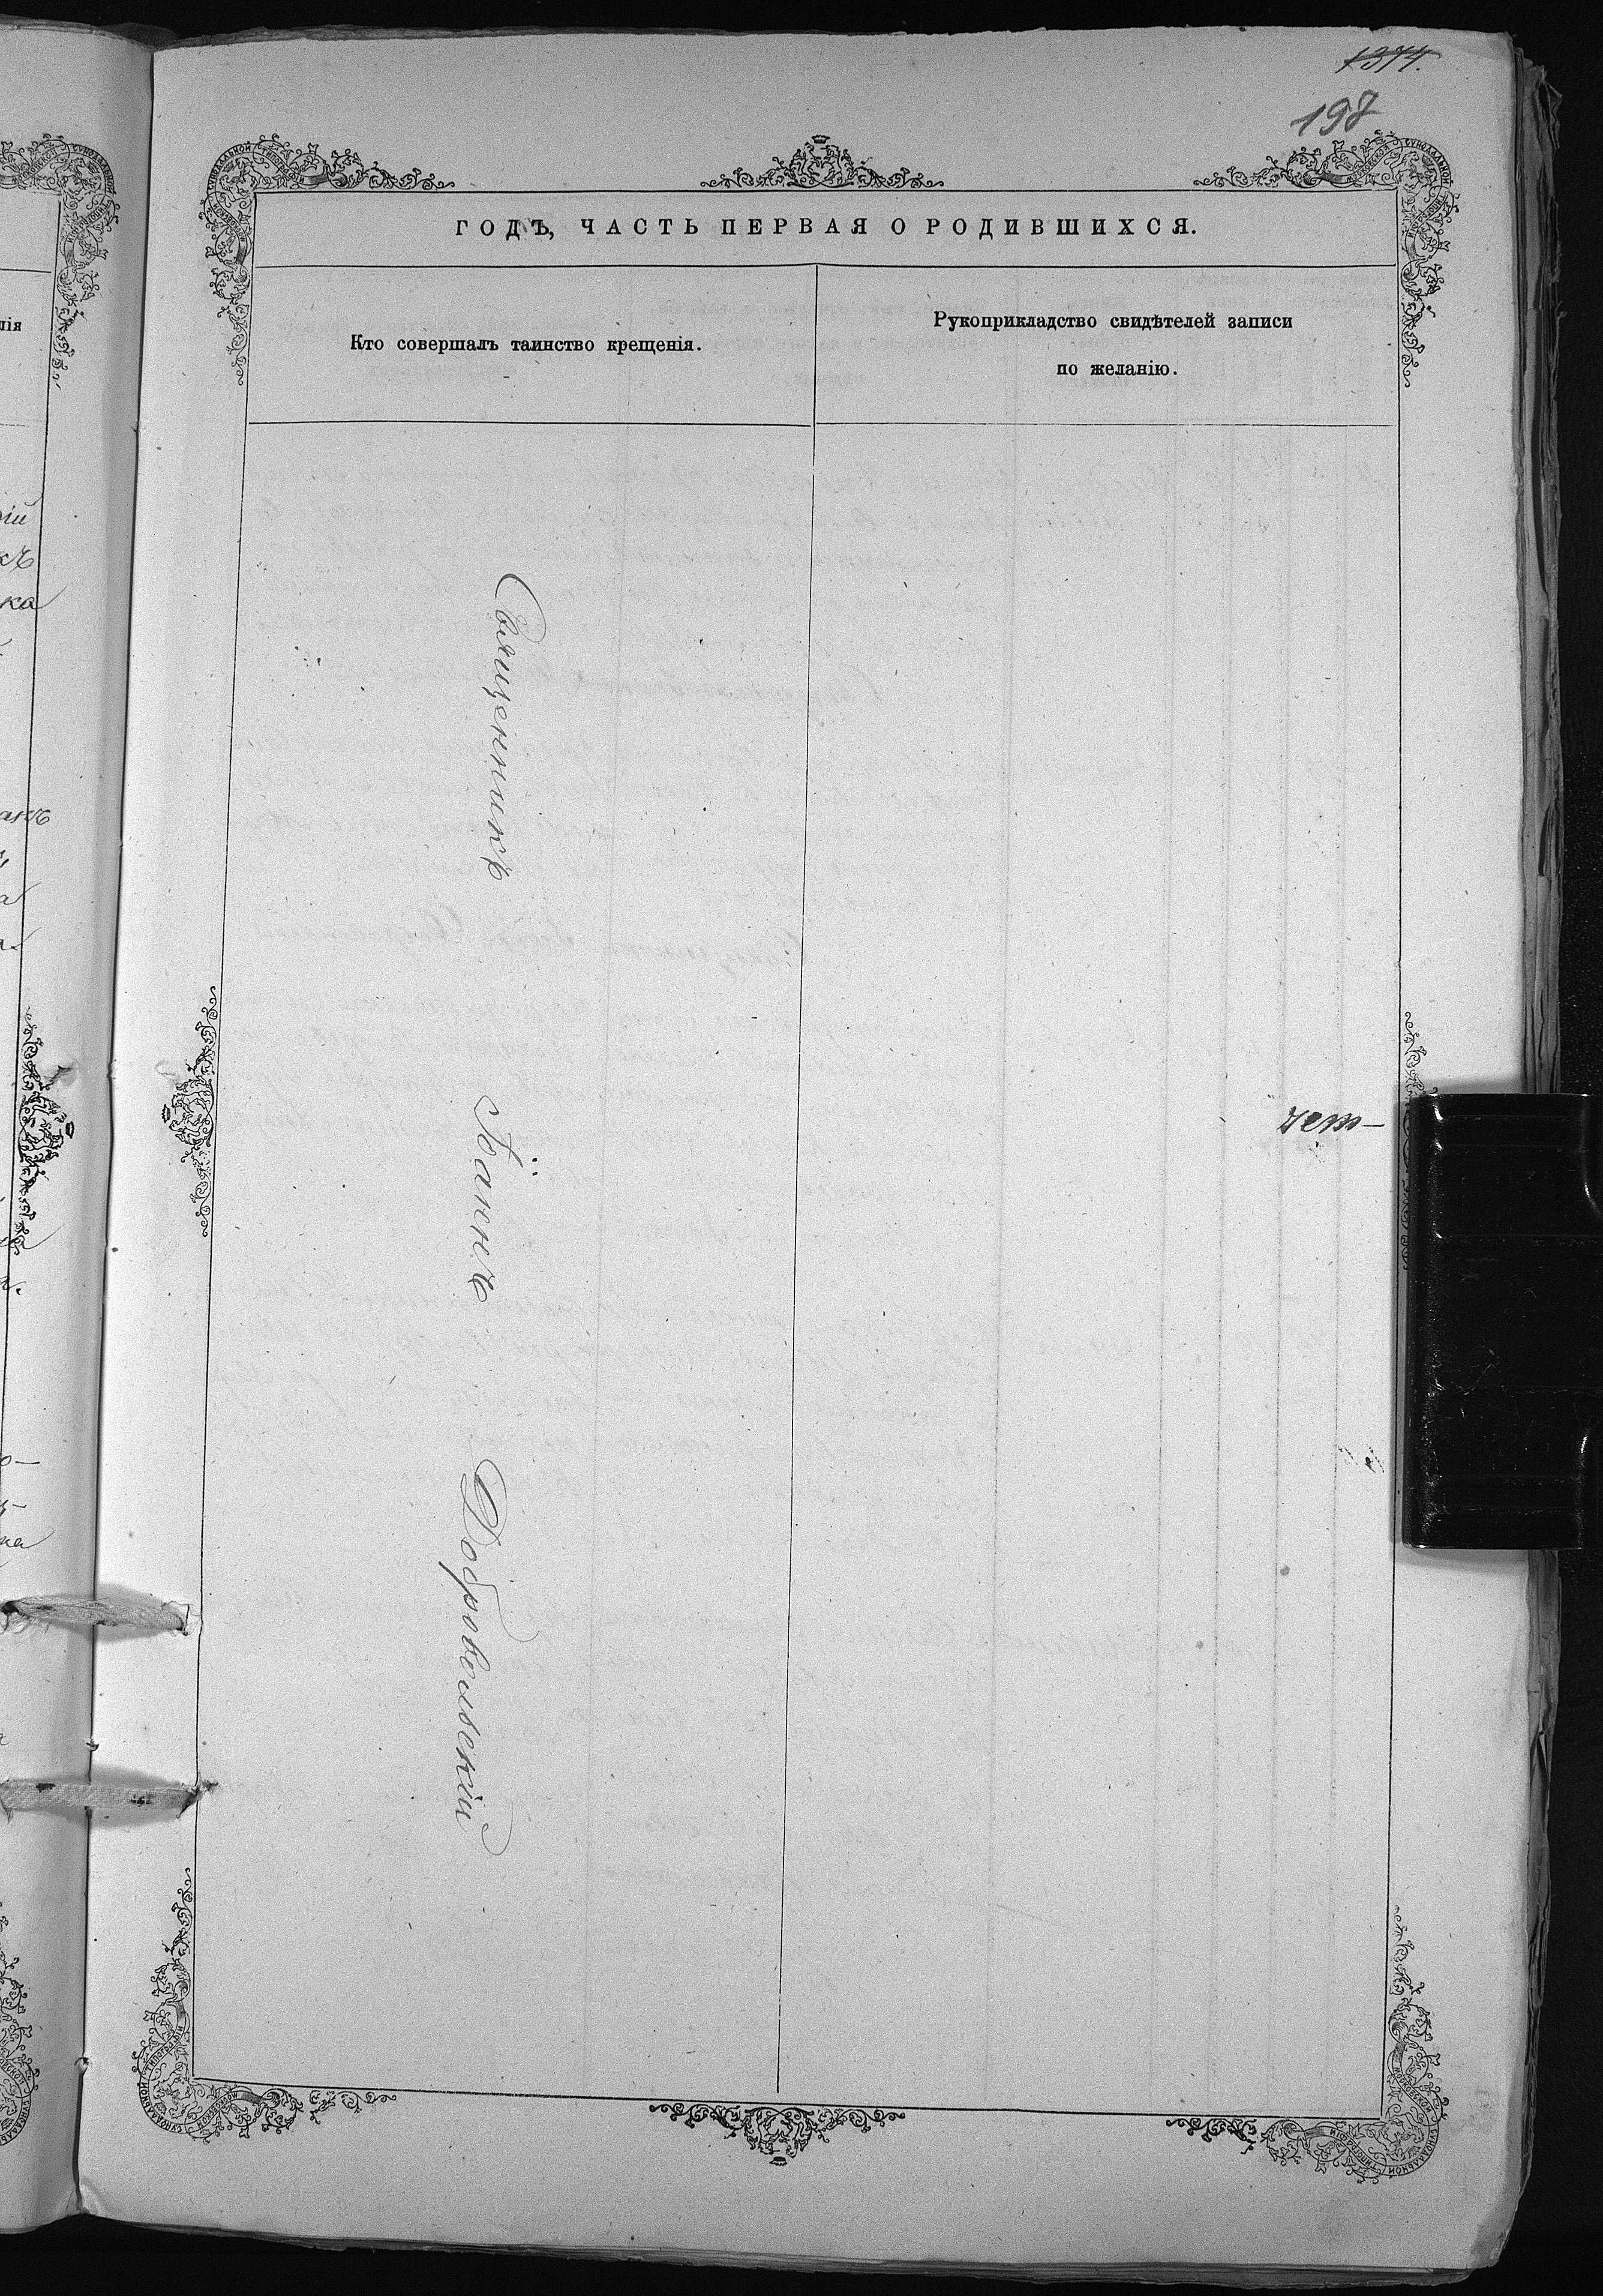 1374.
198
ГОДЪ, ЧАСТЬ ПЕРВАЯ О РОДИВШИХСЯ.
Кто совершалъ таинство крещенія.
Рукоприкладство свидѣтелей записи
по желанію.
Священникъ Іоаннъ Добровольскій
чет—